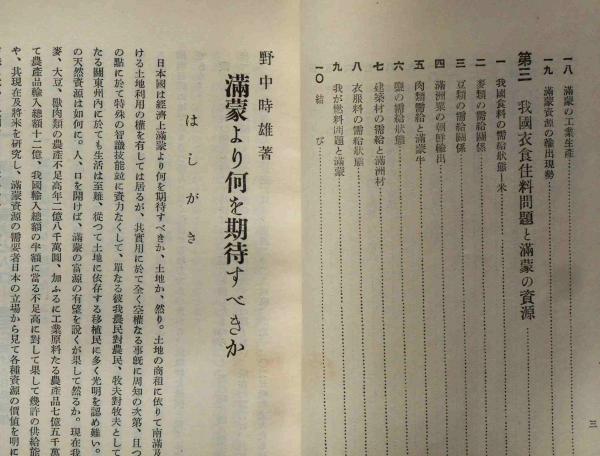 一八　滿蒙の工業生產
一九　滿蒙資源の輸出現勢
第三　我國衣食住料問題と滿蒙の資源
一　我國食料の需給狀態－米
二　麥類の需給關係
三　豆類の需給關係
四　滿洲粟の朝鮮輸出
五　肉類需給と滿蒙牛
六　鹽の需給狀態
七　建築材の需給と滿洲材
八　衣服料の需給狀態
九　我が燃料問題と滿蒙
一〇　結び
三
野中時雄著
滿蒙より何を期待すべきか
はしがき
日本國は經濟上滿蒙より何を期待すべきか、土地か、然り。土地の商租に依つて南滿及
ける土地利用の權を有しては居るが、其實用に於て全く空權なる事旣に周知の次第、且つ
の點に於て特殊の智識技能竝に資力なくして、單なる彼我農民對農民、牧夫對牧夫として
たる關東州內に於ても生活は至難、從つて土地に依存する移植民に多く光明を認め難い。
の天然資源は如何に。人、口を開けば、滿蒙の富源の有望を說くが果して然るか。現在我
麥、大豆、獸肉類の農產不足高年二億八千萬圓、加ふるに工業原料たる農產品七億五千萬
て農產品輸入總額十二億、我國輸入總額の半額に當る不足高に對して果して幾許の供給能
や、其現在及將來を硏究し、滿蒙資源の需要者日本の立場から見て各種資源の價値を明に